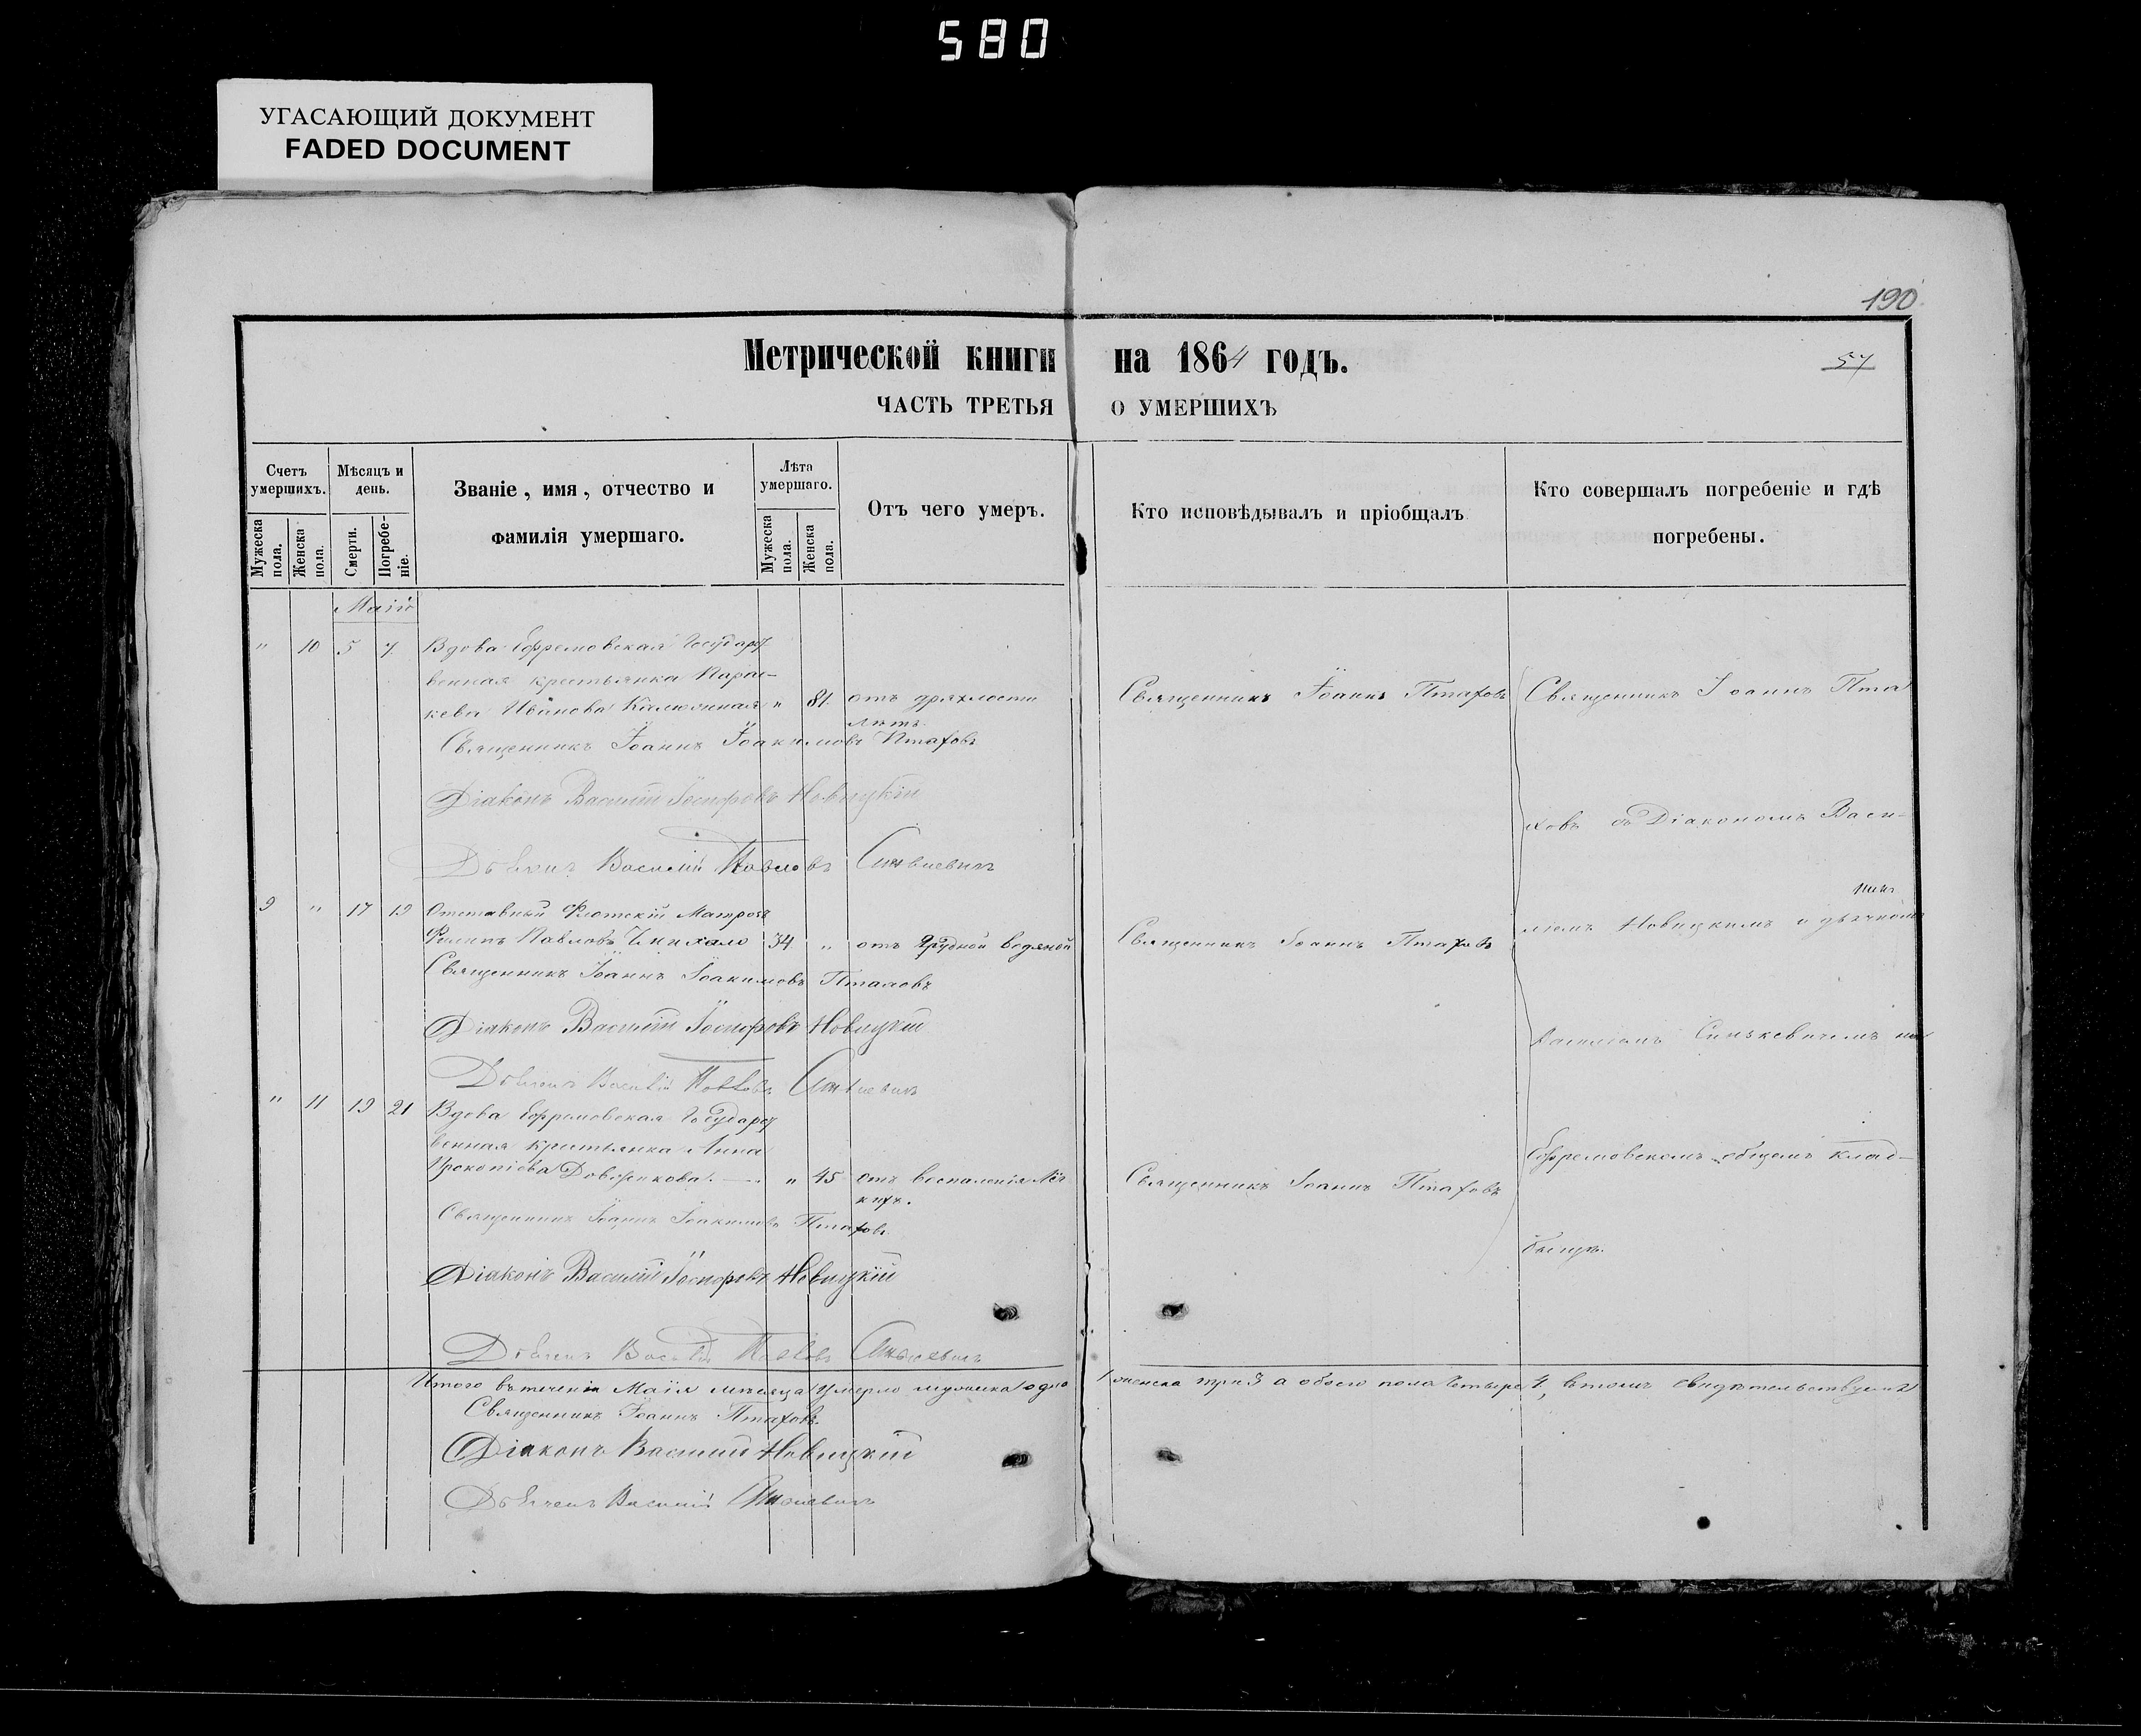 580
УГАСАЮЩИЙ ДОКУМЕНТ
FADED DOCUMENT
190
57
Метрической книги на 1864 годъ.
ЧАСТЬ ТРЕТЬЯ О УМЕРШИХЪ
Счетъ умершихъ.
Мужеска пола.
Женска пола.
Мѣсяцъ и день.
Смерти.
Погребе-ніе.
Званіе, имя, отчество и
фамилія умершаго.
Лѣта умершаго.
Мужеска пола.
Женска пола.
Отъ чего умеръ.
Кто исповѣдывалъ и пріобщалъ
Кто совершалъ погребеніе и гдѣ
погребены.
Маій
" 10 5 7 Вдова Ефремовская Государст
венная крестьянка Парас-
кева Иванова " 81. отъ дряхлости
лѣтъ.
Священникъ Іоаннъ Птаховъ
Священникъ Іоаннъ Іоакимовъ Птаховъ
Діаконъ Василій Іосифовъ Новицкій
Дьячекъ Василій Павловъ Синькевичъ
9 " 17 19 Отставный Флотскій Матросъ
Филипъ Павловъ 34 " отъ грудной водяной
Священникъ Іоаннъ Птаховъ
Священникъ Іоаннъ Іоакимовъ Птаховъ
Діаконъ Василій Іосифовъ Новицкій
Дьячекъ Василій Павловъ Синькевичъ
" 11 19 21 Вдова Ефремовская Государст
венная крестьянка Анна
Прокопіева " 45 отъ воспаленія лег
кихъ.
Священникъ Іоаннъ Птаховъ
Священникъ Іоаннъ Іоакимовъ Птаховъ
Діаконъ Василій Іосифовъ Новицкій
Дьячекъ Василій Павловъ Синькевичъ
Священникъ Іоаннъ Пта
ховъ съ Діакономъ Васи-
ліемъ Новицкимъ и дьячкомъ
Василіемъ Синькевичемъ на
Ефремовскомъ общемъ клад-
бищѣ.
Итого въ теченіи Маія мѣсяца умерло мужеска одно 1 женска три 3 а обоего пола четыре 4, въ томъ свидѣтельствуемъ
Священникъ Іоаннъ Птаховъ.
Діаконъ Василій Новицкій
Дьячекъ Василій Синькевичъ